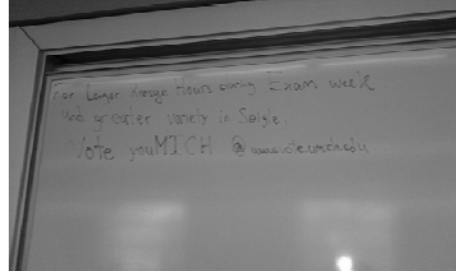 For Longer Kresge Hours during Exam week
and greater variety in Seigle,
Vote youMICH @ www.vote.umich.edu